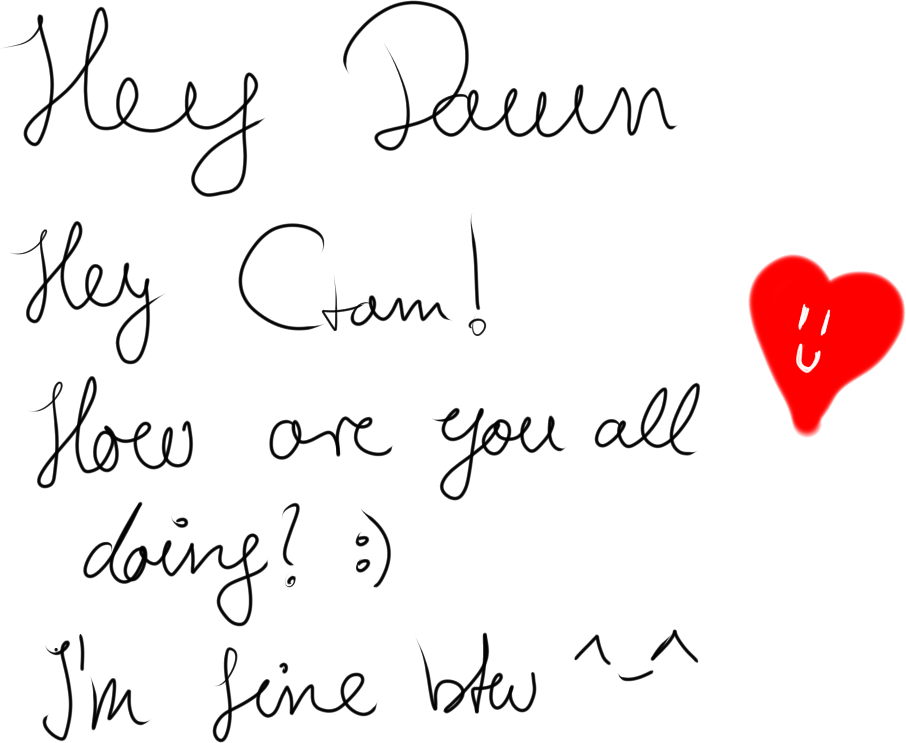 Hey Dawn
Hey Ctam!
How are you all
doing? :)
I'm fine btw ^_^